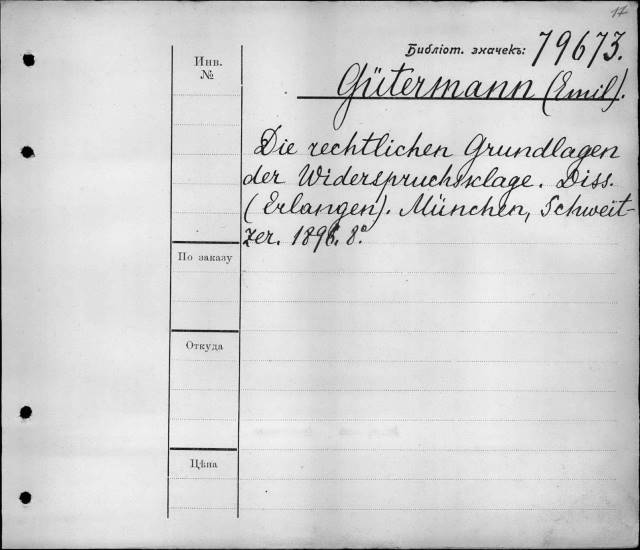 17
Библіот. значекъ: 79673.
Инв.
№
Gütermann (Emil).
Die rechtlichen Grundlagen
der Widerspruchsklage. Diss.
(Erlangen). München, Schweit-
zer. 1896. 8.°
По заказу
Откуда
Цѣна